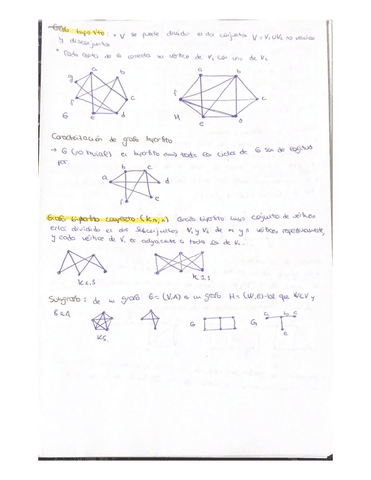 Grafo bipartito: • V se puede dividir en dos conjuntos V = V₁UV₂ no vacíos
y disjuntos
• Cada arista de G conecta un vértice de V₁ con uno de V₂
a b
g
f c
G e d
a b
f c
H e d
Caracterización de grafo bipartito
→ G (no trivial) es bipartito todos los ciclos de G son de longitud
par
b c
a d
f e
Grafo bipartito completo: Grafo bipartito cuyo conjunto de vértices
está dividido en dos subconjuntos V₁ y V₂ de m y n vértices, respectivamente,
y cada vértice de V₁ es adyacente a todos los de V₂.
Subgrafo: de un grafo G=(V,A) es un grafo H=(W,B) tal que W⊆V y
B⊆A
K5
G
G a b c
e